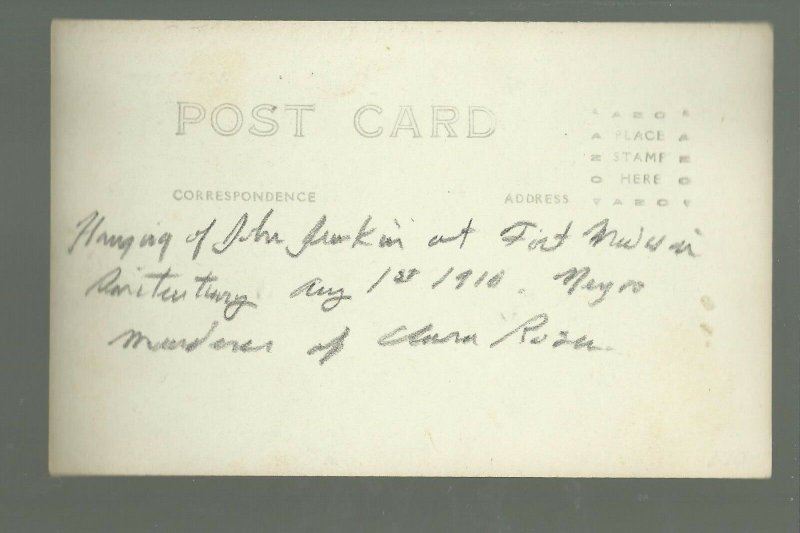 POST CARD
AZO
PLACE
STAMP
HERE
AZO
CORRESPONDENCE
ADDRESS
Hanging of John Junkin at Fort Madison
Penitentiary Aug 1st 1910. Negro
murderer of Clara Rosen